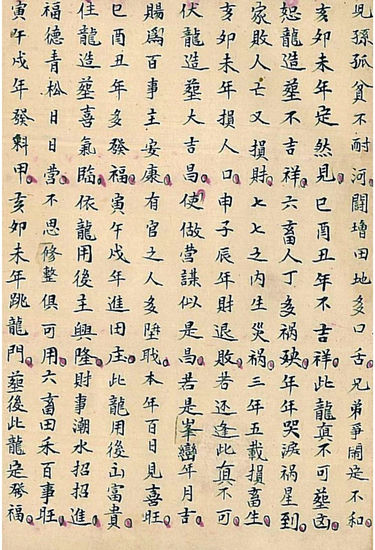 児孫孤貧不耐河鬪墻田地多口舌。兄弟爭鬧是不和。
亥卯未年定然見巳酉丑年不吉祥。此龍真不可塟凶。
怨龍造塟不吉祥。六畜人丁多禍殃。年年哭淚禍星到。
家敗人亡又損財。七七之內生災禍。三年五載損畜生。
亥卯未年損人口。申子辰年財退敗。若还逢此真不可。
伏龍造塟大吉昌。使做營謀似是昌。若是峯巒年月吉。
賜爲百事主安康。有官之人多陞職。本年百日見喜旺。
巳酉丑年多發福。寅午戌年進田庄。此龍用後出富貴。
住龍造塟喜氣臨。依龍用後主興隆。財事潮水招招進。
福德青松日日營。不思修整俱可用。六畜田禾百事旺。
寅午戌年發科甲。亥卯未年跳龍門。塟後此龍定發福。